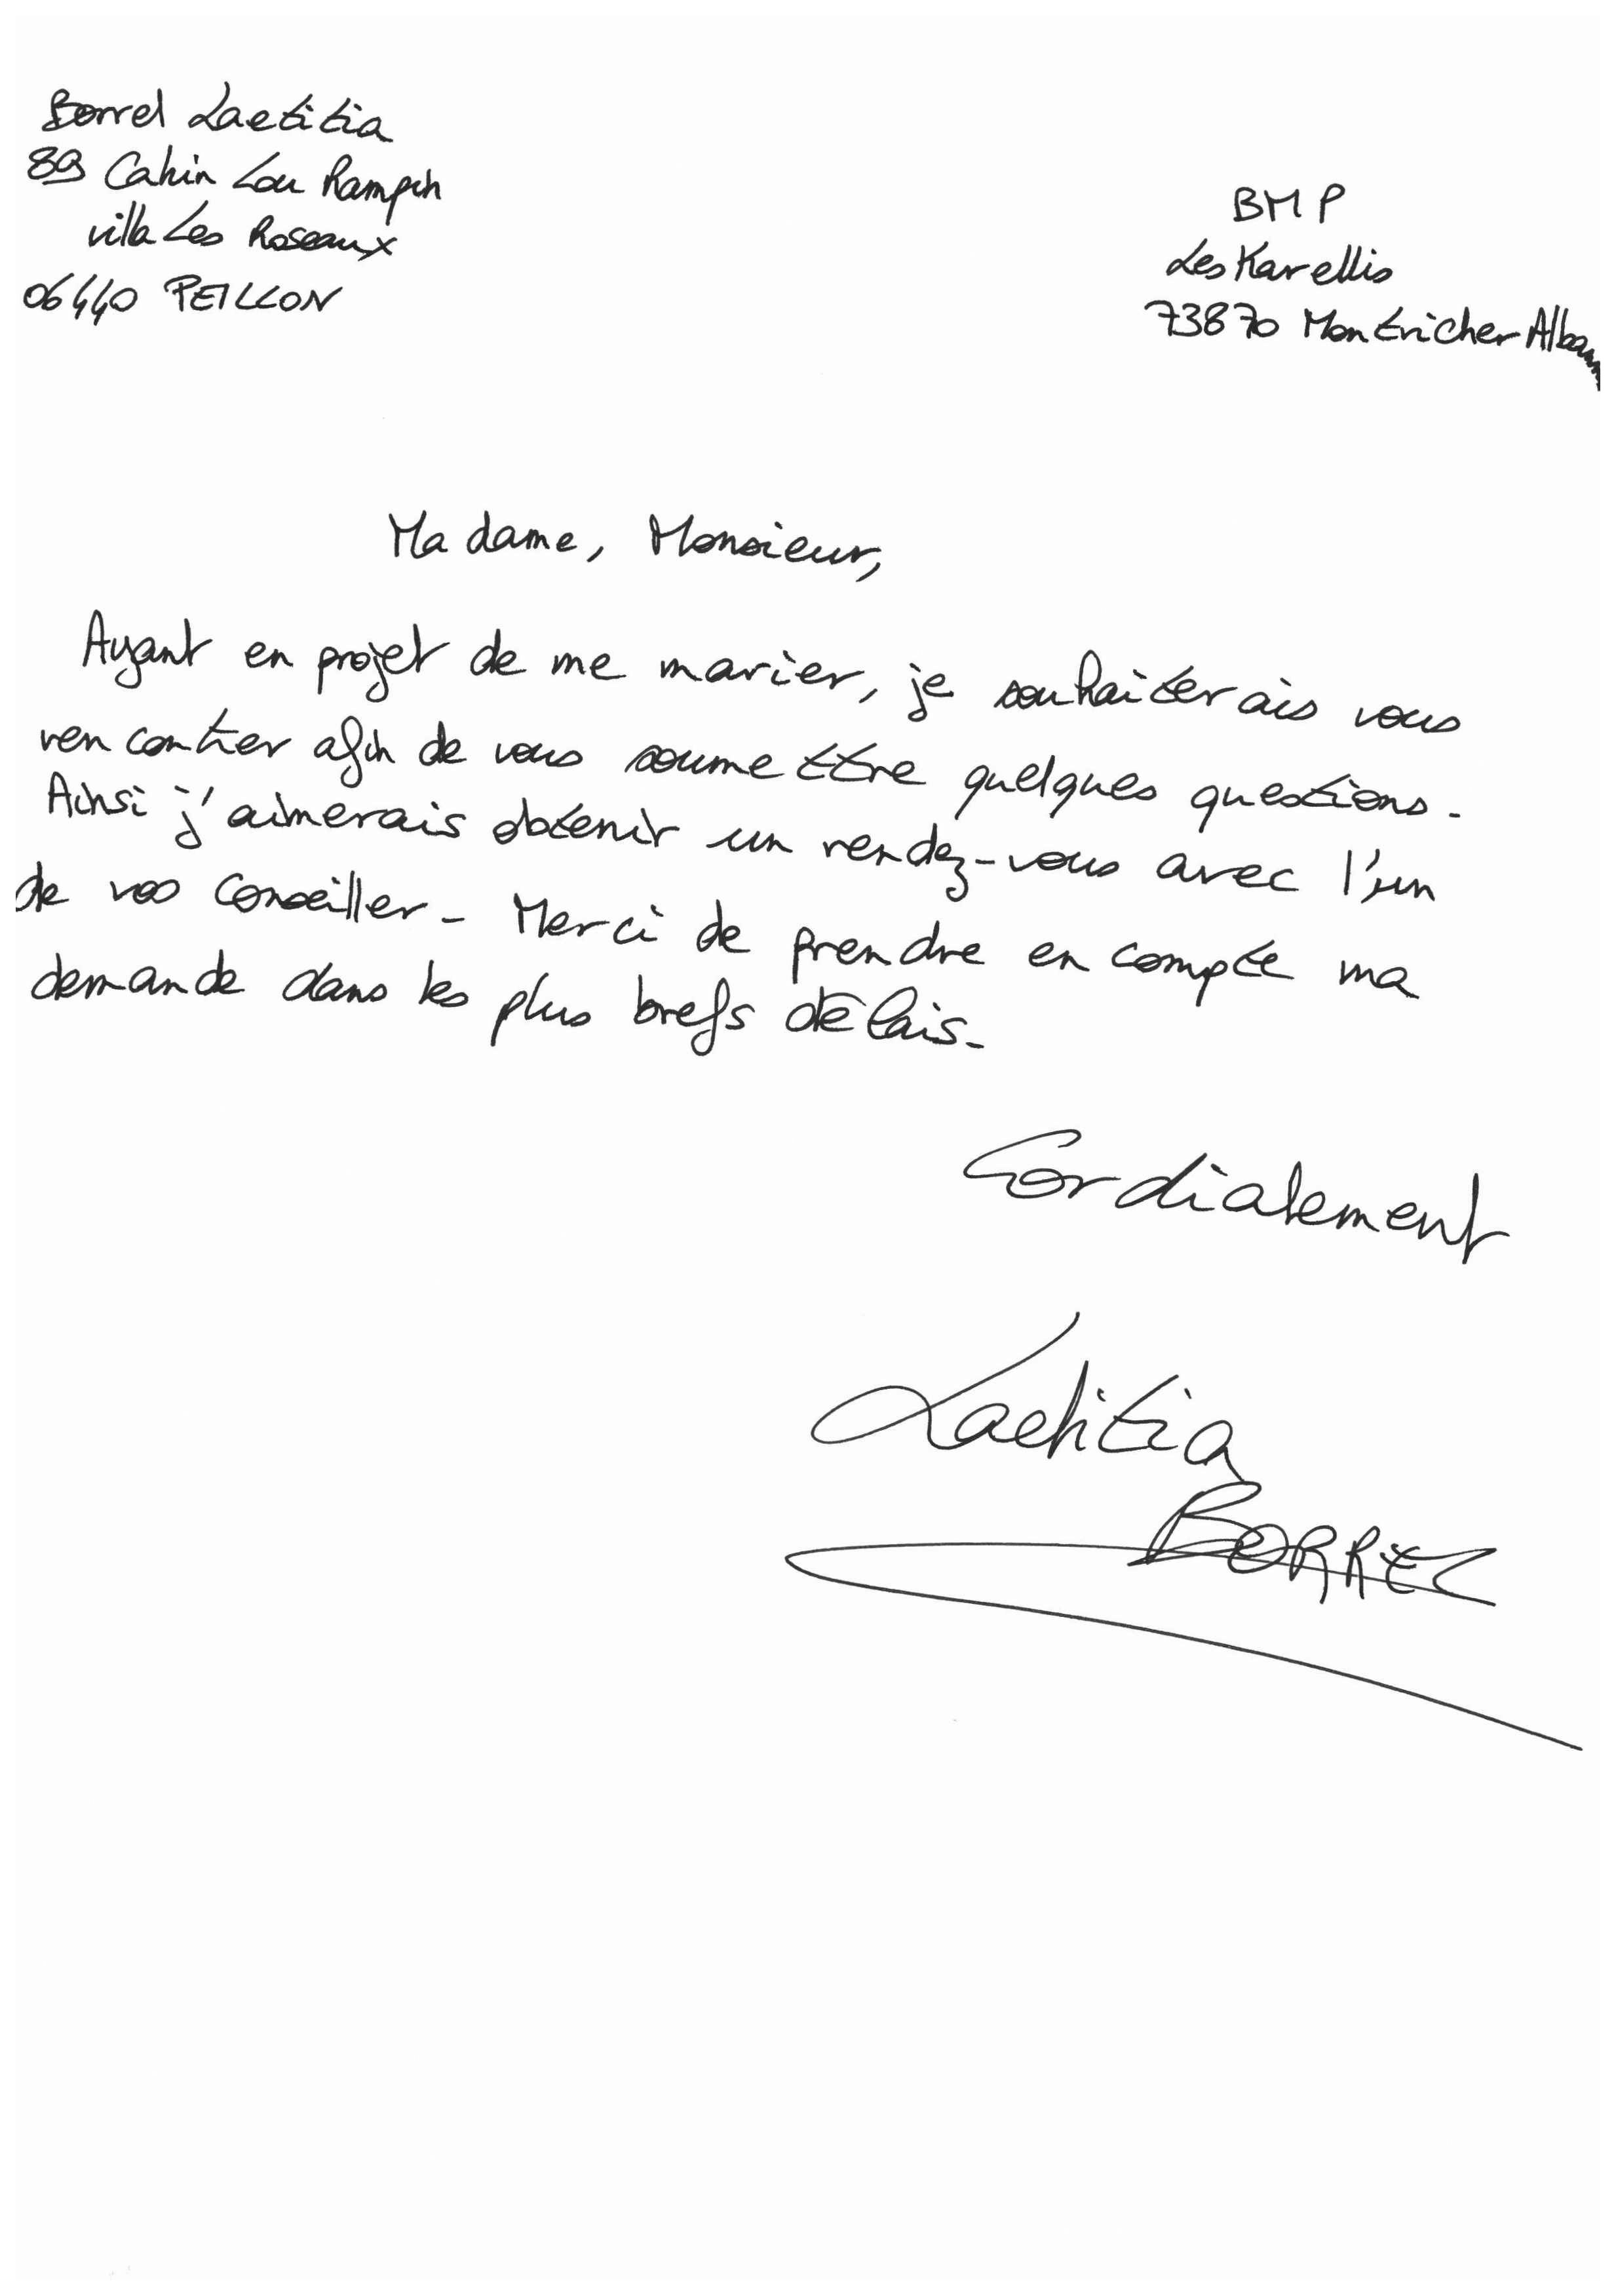 Borrel Laetitia
89 Cahin Lou Rampin
villa Les Roseaux
06440 PEILLON
BMP
Les Karellis
73870 Montricher Albann
Madame, Monsieur,
Ayant en projet de me marier, je souhaiterais vous
rencontrer afin de vous soumettre quelques questions.
Ainsi j'aimerais obtenir un rendez-vous avec l'un
de vos conseiller. Merci de prendre en compte ma
demande dans les plus brefs délais.
Cordialement
Laetitia
BORREL